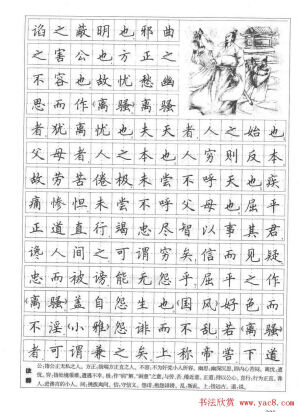 谄之蔽明也,邪曲
之害公也,方正之
不容也,故忧愁幽
思而作《离骚》。离骚
者,犹离忧也。夫天者,人之始也;
父母者,人之本也。人穷则反本,
故劳苦倦极,未尝不呼天也;疾
痛惨怛,未尝不呼父母也。屈平
正道直行,竭忠尽智以事其君,
谗人间之,可谓穷矣。信而见疑,
忠而被谤,能无怨乎?屈平之作
《离骚》,盖自怨生也。《国风》好色而
不淫,《小雅》怨诽而不乱,若《离骚》
者,可谓兼之矣。上称帝喾,下道
注释
书法欣赏 www.yac8.com